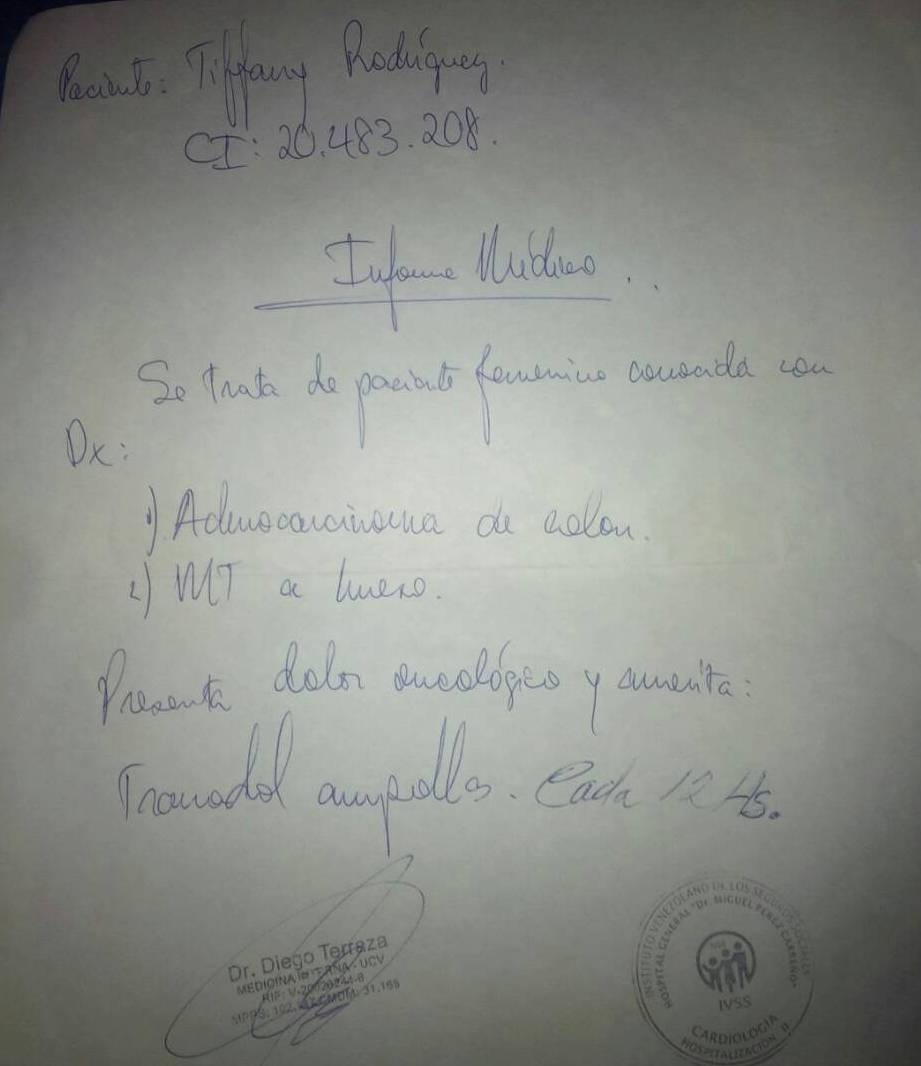 Paciente: Tiffany Rodríguez.
CI: 20.483.208.
Informe Médico.
Se trata de paciente femenino conocida con
Dx:
1) Adenocarcinoma de colon.
2) MT a hueso.
Presenta dolor oncológico y amerita:
Tramadol ampollas. Cada 12 Hs.
Dr. Diego Terraza
MEDICINA INTERNA - UCV
RIF: V-20026244-8
MPPS: 102. CMDM: 31.165
INSTITUTO VENEZOLANO DE LOS SEGUROS SOCIALES
HOSPITAL GENERAL "Dr. MIGUEL PEREZ CARREÑO"
IVSS
CARDIOLOGIA
HOSPITALIZACION - II